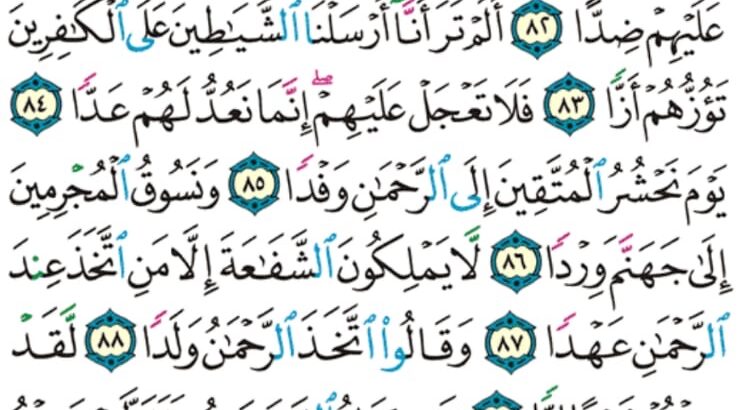 عَلَيْهِمْ ضِدًّا ٨٢ أَلَمْ تَرَ أَنَّآ أَرْسَلْنَا ٱلشَّيَٰطِينَ عَلَى ٱلْكَٰفِرِينَ
تَؤُزُّهُمْ أَزًّا ٨٣ فَلَا تَعْجَلْ عَلَيْهِمْ ۖ إِنَّمَا نَعُدُّ لَهُمْ عَدًّا ٨٤
يَوْمَ نَحْشُرُ ٱلْمُتَّقِينَ إِلَى ٱلرَّحْمَٰنِ وَفْدًا ٨٥ وَنَسُوقُ ٱلْمُجْرِمِينَ
إِلَىٰ جَهَنَّمَ وِرْدًا ٨٦ لَّا يَمْلِكُونَ ٱلشَّفَٰعَةَ إِلَّا مَنِ ٱتَّخَذَ عِندَ
ٱلرَّحْمَٰنِ عَهْدًا ٨٧ وَقَالُوا۟ ٱتَّخَذَ ٱلرَّحْمَٰنُ وَلَدًا ٨٨ لَّقَدْ